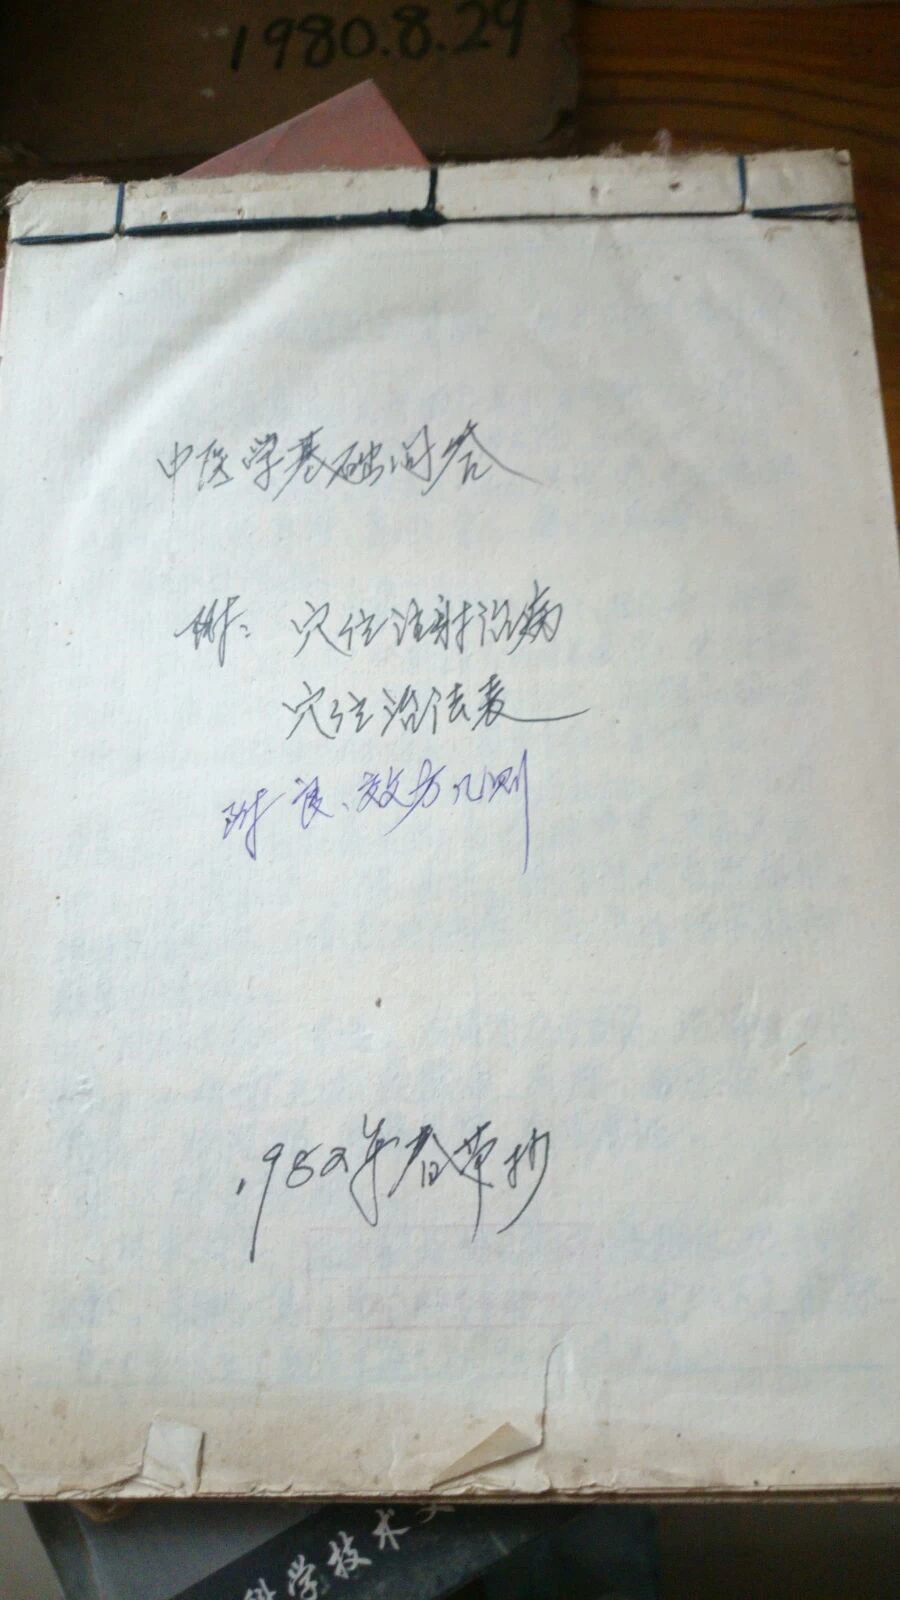 1980.8.29
中医学基础问答
附：穴位注射治病
穴位治法表
附 良、效方几则
1982年春草抄
科学技术